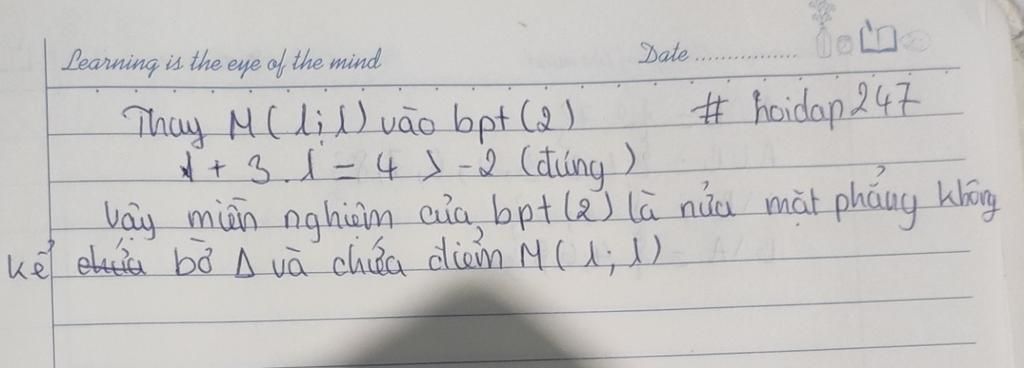 Learning is the eye of the mind Date ................
Thay M(1;1) vào bpt (2) # hoidap247
1 + 3.1 = 4 > -2 (đúng)
Vậy miền nghiệm của bpt (2) là nửa mặt phẳng không
kể chứa bờ Δ và chứa điểm M(1;1)